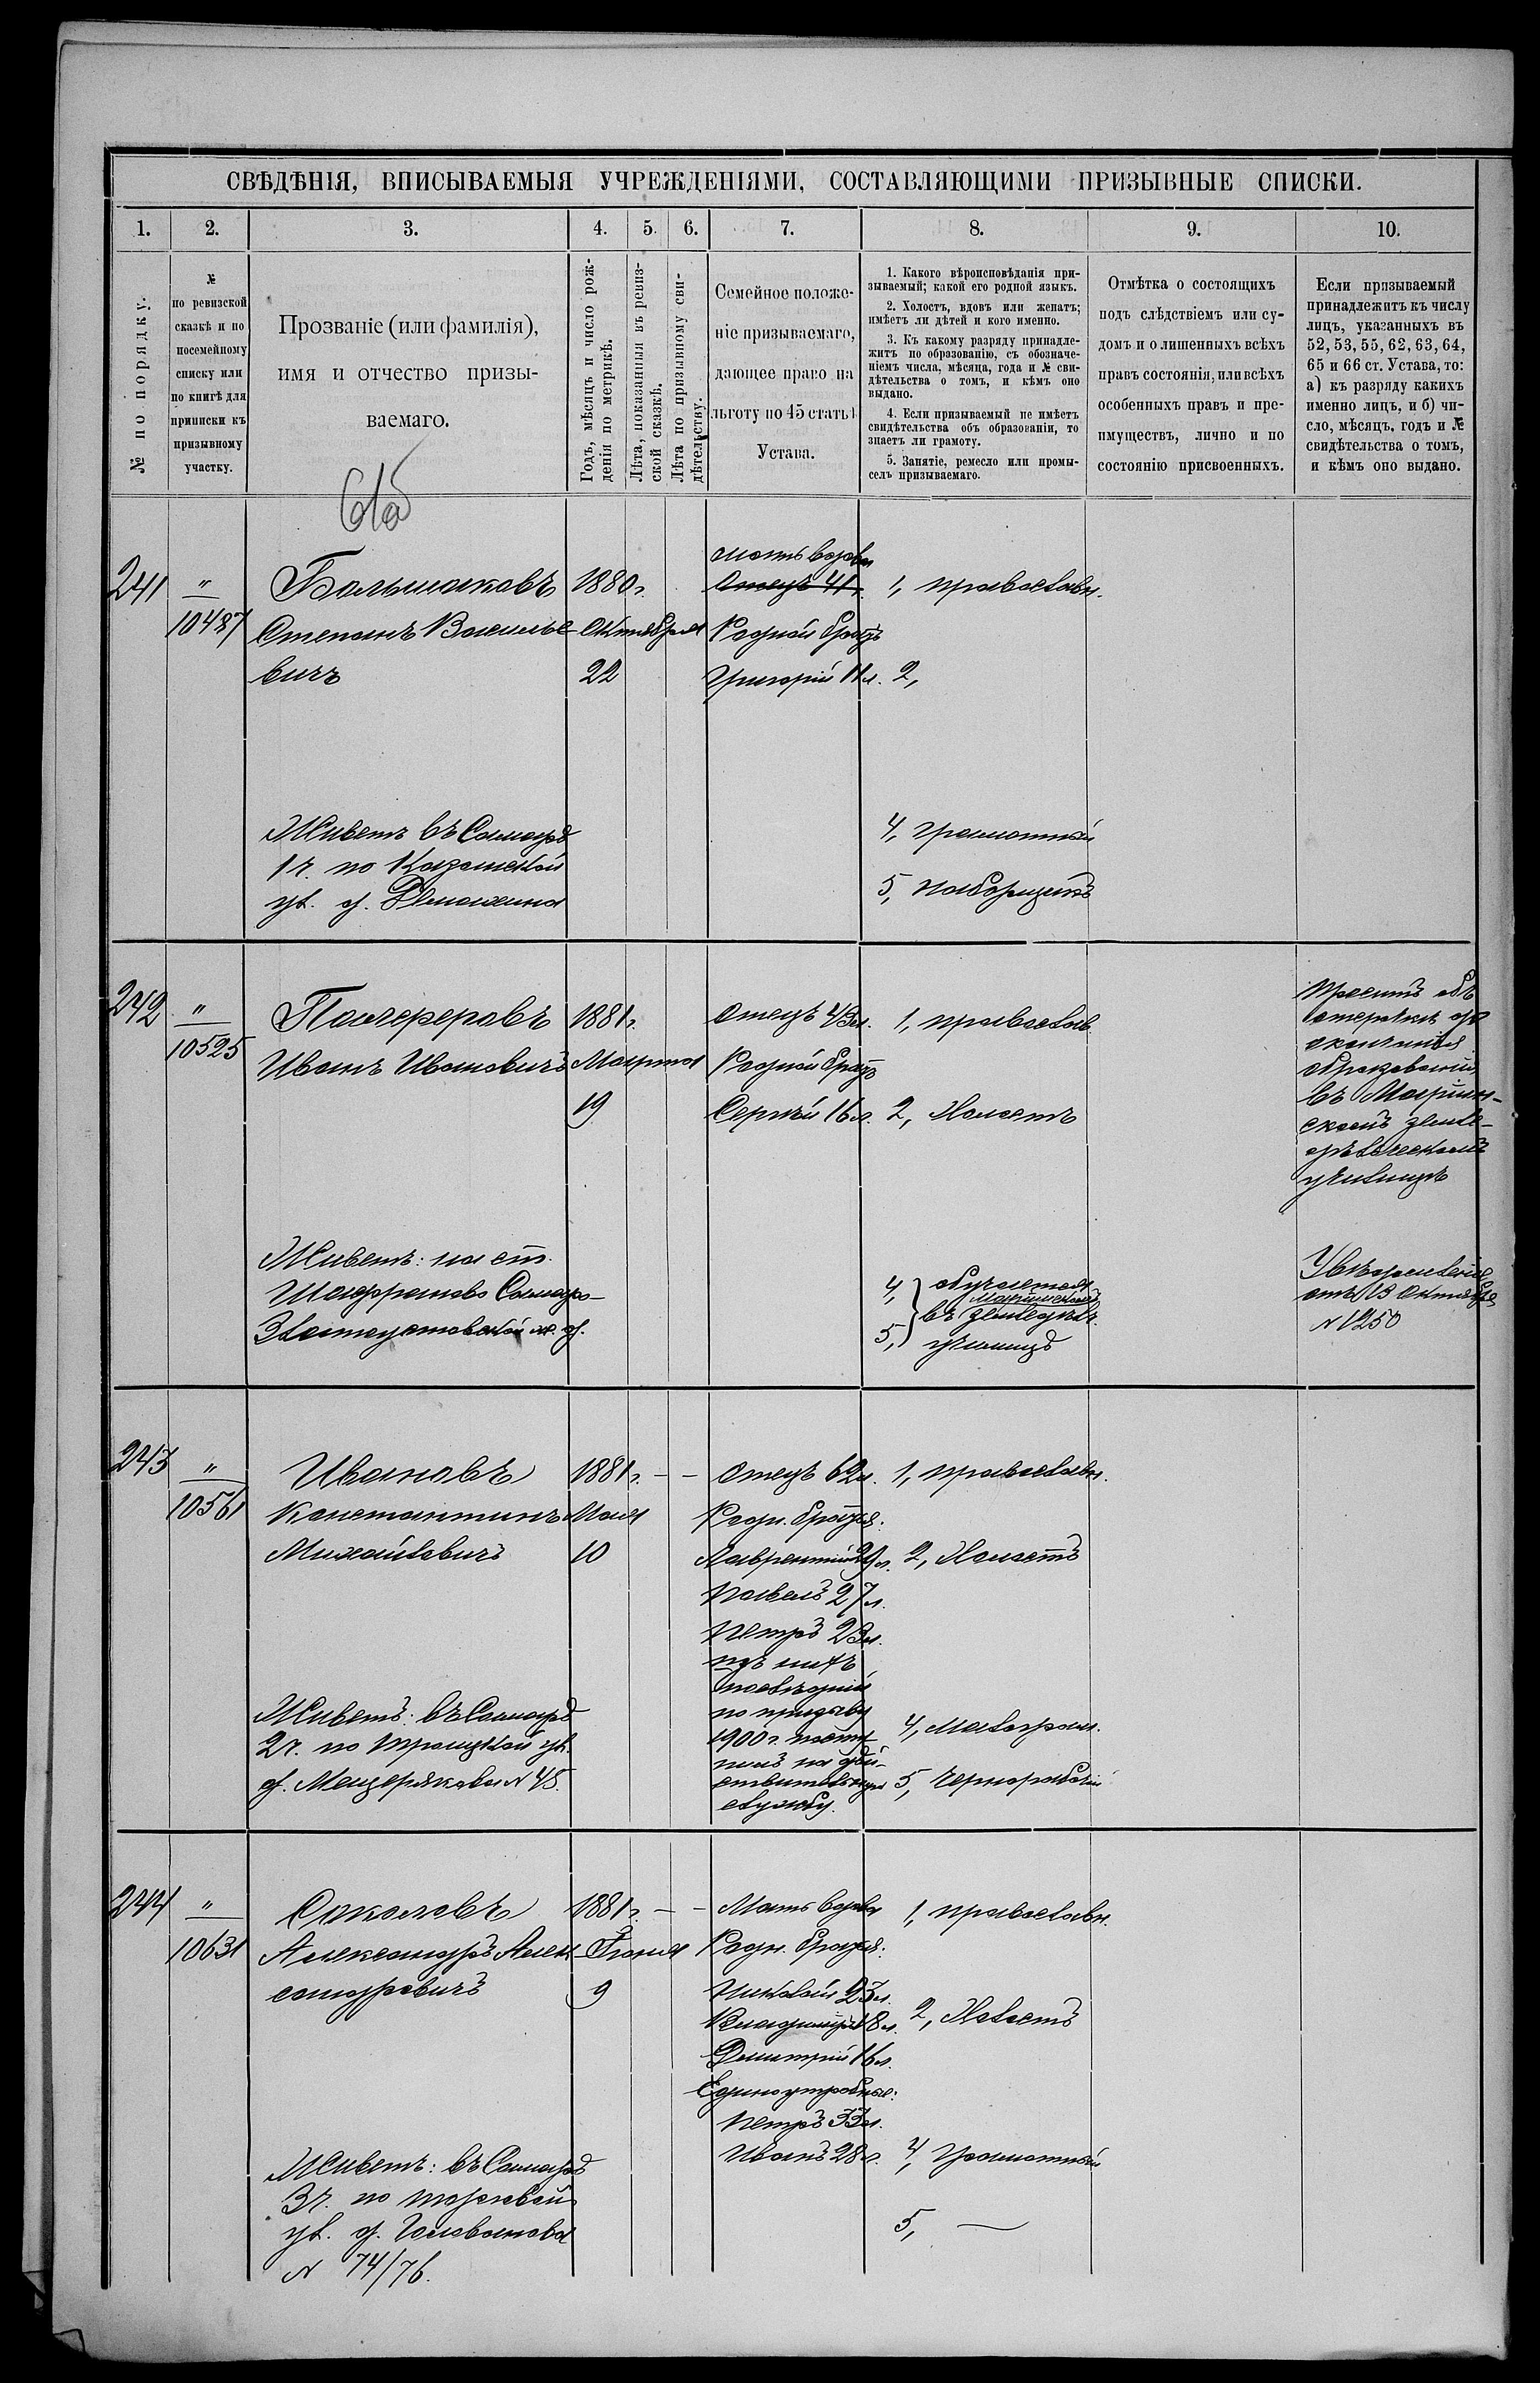 СВѢДѢНІЯ, ВПИСЫВАЕМЫЯ УЧРЕЖДЕНІЯМИ, СОСТАВЛЯЮЩИМИ ПРИЗЫВНЫЕ СПИСКИ.
1.
2.
3.
4.
5.
6.
7.
8.
9.
10.
№ по порядку.
№
по ревизской
сказкѣ и по
посемейному
списку или
по книгѣ для
приписки къ
призывному
участку.
Прозваніе (или фамилія),
имя и отчество призы-
ваемаго.
Годъ, мѣсяцъ и число рож-
денія по метрикѣ.
Лѣта, показанныя въ ревиз-
ской сказкѣ.
Лѣта по призывному сви-
дѣтельству.
Семейное положе-
ніе призываемаго,
дающее право на
льготу по 45 статьѣ
Устава.
1. Какого вѣроисповѣданія при-
зываемый; какой его родной языкъ.
2. Холостъ, вдовъ или женатъ;
имѣетъ ли дѣтей и кого именно.
3. Къ какому разряду принадле-
житъ по образованію, съ обозначе-
ніемъ числа, мѣсяца, года и № сви-
дѣтельства о томъ, и кѣмъ оно
выдано.
4. Если призываемый не имѣетъ
свидѣтельства объ образованіи, то
знаетъ ли грамоту.
5. Занятіе, ремесло или промы-
селъ призываемаго.
Отмѣтка о состоящихъ
подъ слѣдствіемъ или су-
домъ и о лишенныхъ всѣхъ
правъ состоянія, или всѣхъ
особенныхъ правъ и пре-
имуществъ, лично и по
состоянію присвоенныхъ.
Если призываемый
принадлежитъ къ числу
лицъ, указанныхъ въ
52, 53, 55, 62, 63, 64,
65 и 66 ст. Устава, то:
а) къ разряду какихъ
именно лицъ, и б) чи-
сло, мѣсяцъ, годъ и №
свидѣтельства о томъ,
и кѣмъ оно выдано.
241
"
10487
Большаковъ
Степанъ Василье-
вичъ
1880 г.
Октября
22
мать вдова
Отецъ 41
Родной братъ
Григорій 11 л.
1, православн.
2,
4, грамотный
5, наборщикъ
Живетъ въ Самарѣ
1 ч. по Казанской
ул. д.
242
"
10525
Пачереровъ
Иванъ Ивановичъ
1881 г.
Марта
19
отецъ 43 л.
Родной братъ
Сергѣй 16 л.
1, православ.
2, Холостъ
Живетъ: на ст.
Шафраново Самаро-
Златоустовской ж. д.
4,
5,
обучается
въ Маріинскомъ
земледѣльч.
училищѣ
проситъ объ
отсрочкѣ до
окончанія
образованія
въ Маріин-
скомъ земле-
дѣльческомъ
училищѣ
отъ 13 Октября
N 1250
243
"
10561
Ивановъ
Константинъ
Михайловичъ
1881 г. - -
Мая
10
отецъ 62 л.
Родн. братья:
Лаврентій 29 л.
Павелъ 27 л.
Петръ 23 л.
изъ нихъ
послѣдній
по призыву
1900 г. посту-
пилъ на дѣй-
ствительную
службу.
1, православн.
2, Холостъ
4, Малограм.
5, Чернорабочій
Живетъ: въ Самарѣ
2 ч. по Троицкой ул.
д. Мещерякова N 45.
244
"
10631
Соколовъ
Александръ Алек-
сандровичъ
1881 г. - -
Іюня
9
Мать вдова
Родн. братья:
Николай 23 л.
Владиміръ 18 л.
Дмитрій 16 л.
Единоутробные:
Петръ 33 л.
Иванъ 28 л.
1, православн.
2, Холостъ
4, грамотный
5, —
Живетъ: въ Самарѣ
3 ч. по торговой
ул. д. Голованова
N 74/76.